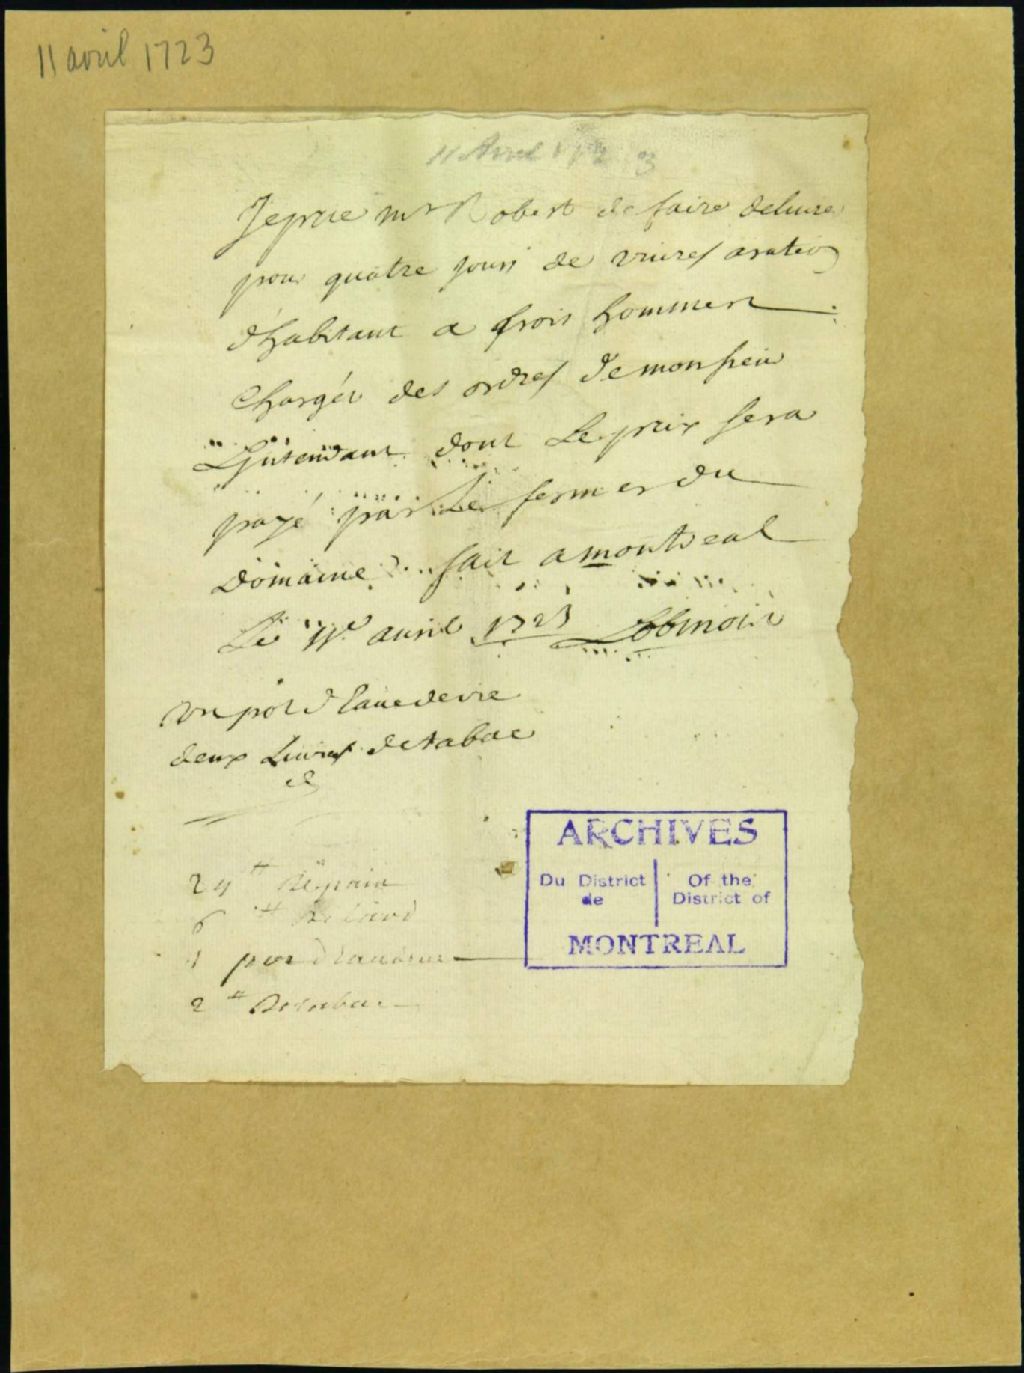 11 avril 1723
11 Avril 1723
Je prie mr Robert de faire deliurer
pour quatre jours de viures a ration
d'habitant a trois hommes
chargés des ordres de monsieur
L'jntendant dont Le prix sera
payé par Le fermier du
Domaine fait a montreal
Le 11e auril 1723 Lobinois
un pot d'Eaue de vie
deux Liures de tabac
24 tt de pain
6 tt de Lard
1 pot d'Eau de vie
2 tt de tabac
ARCHIVES
Du District de
Of the District of
MONTREAL